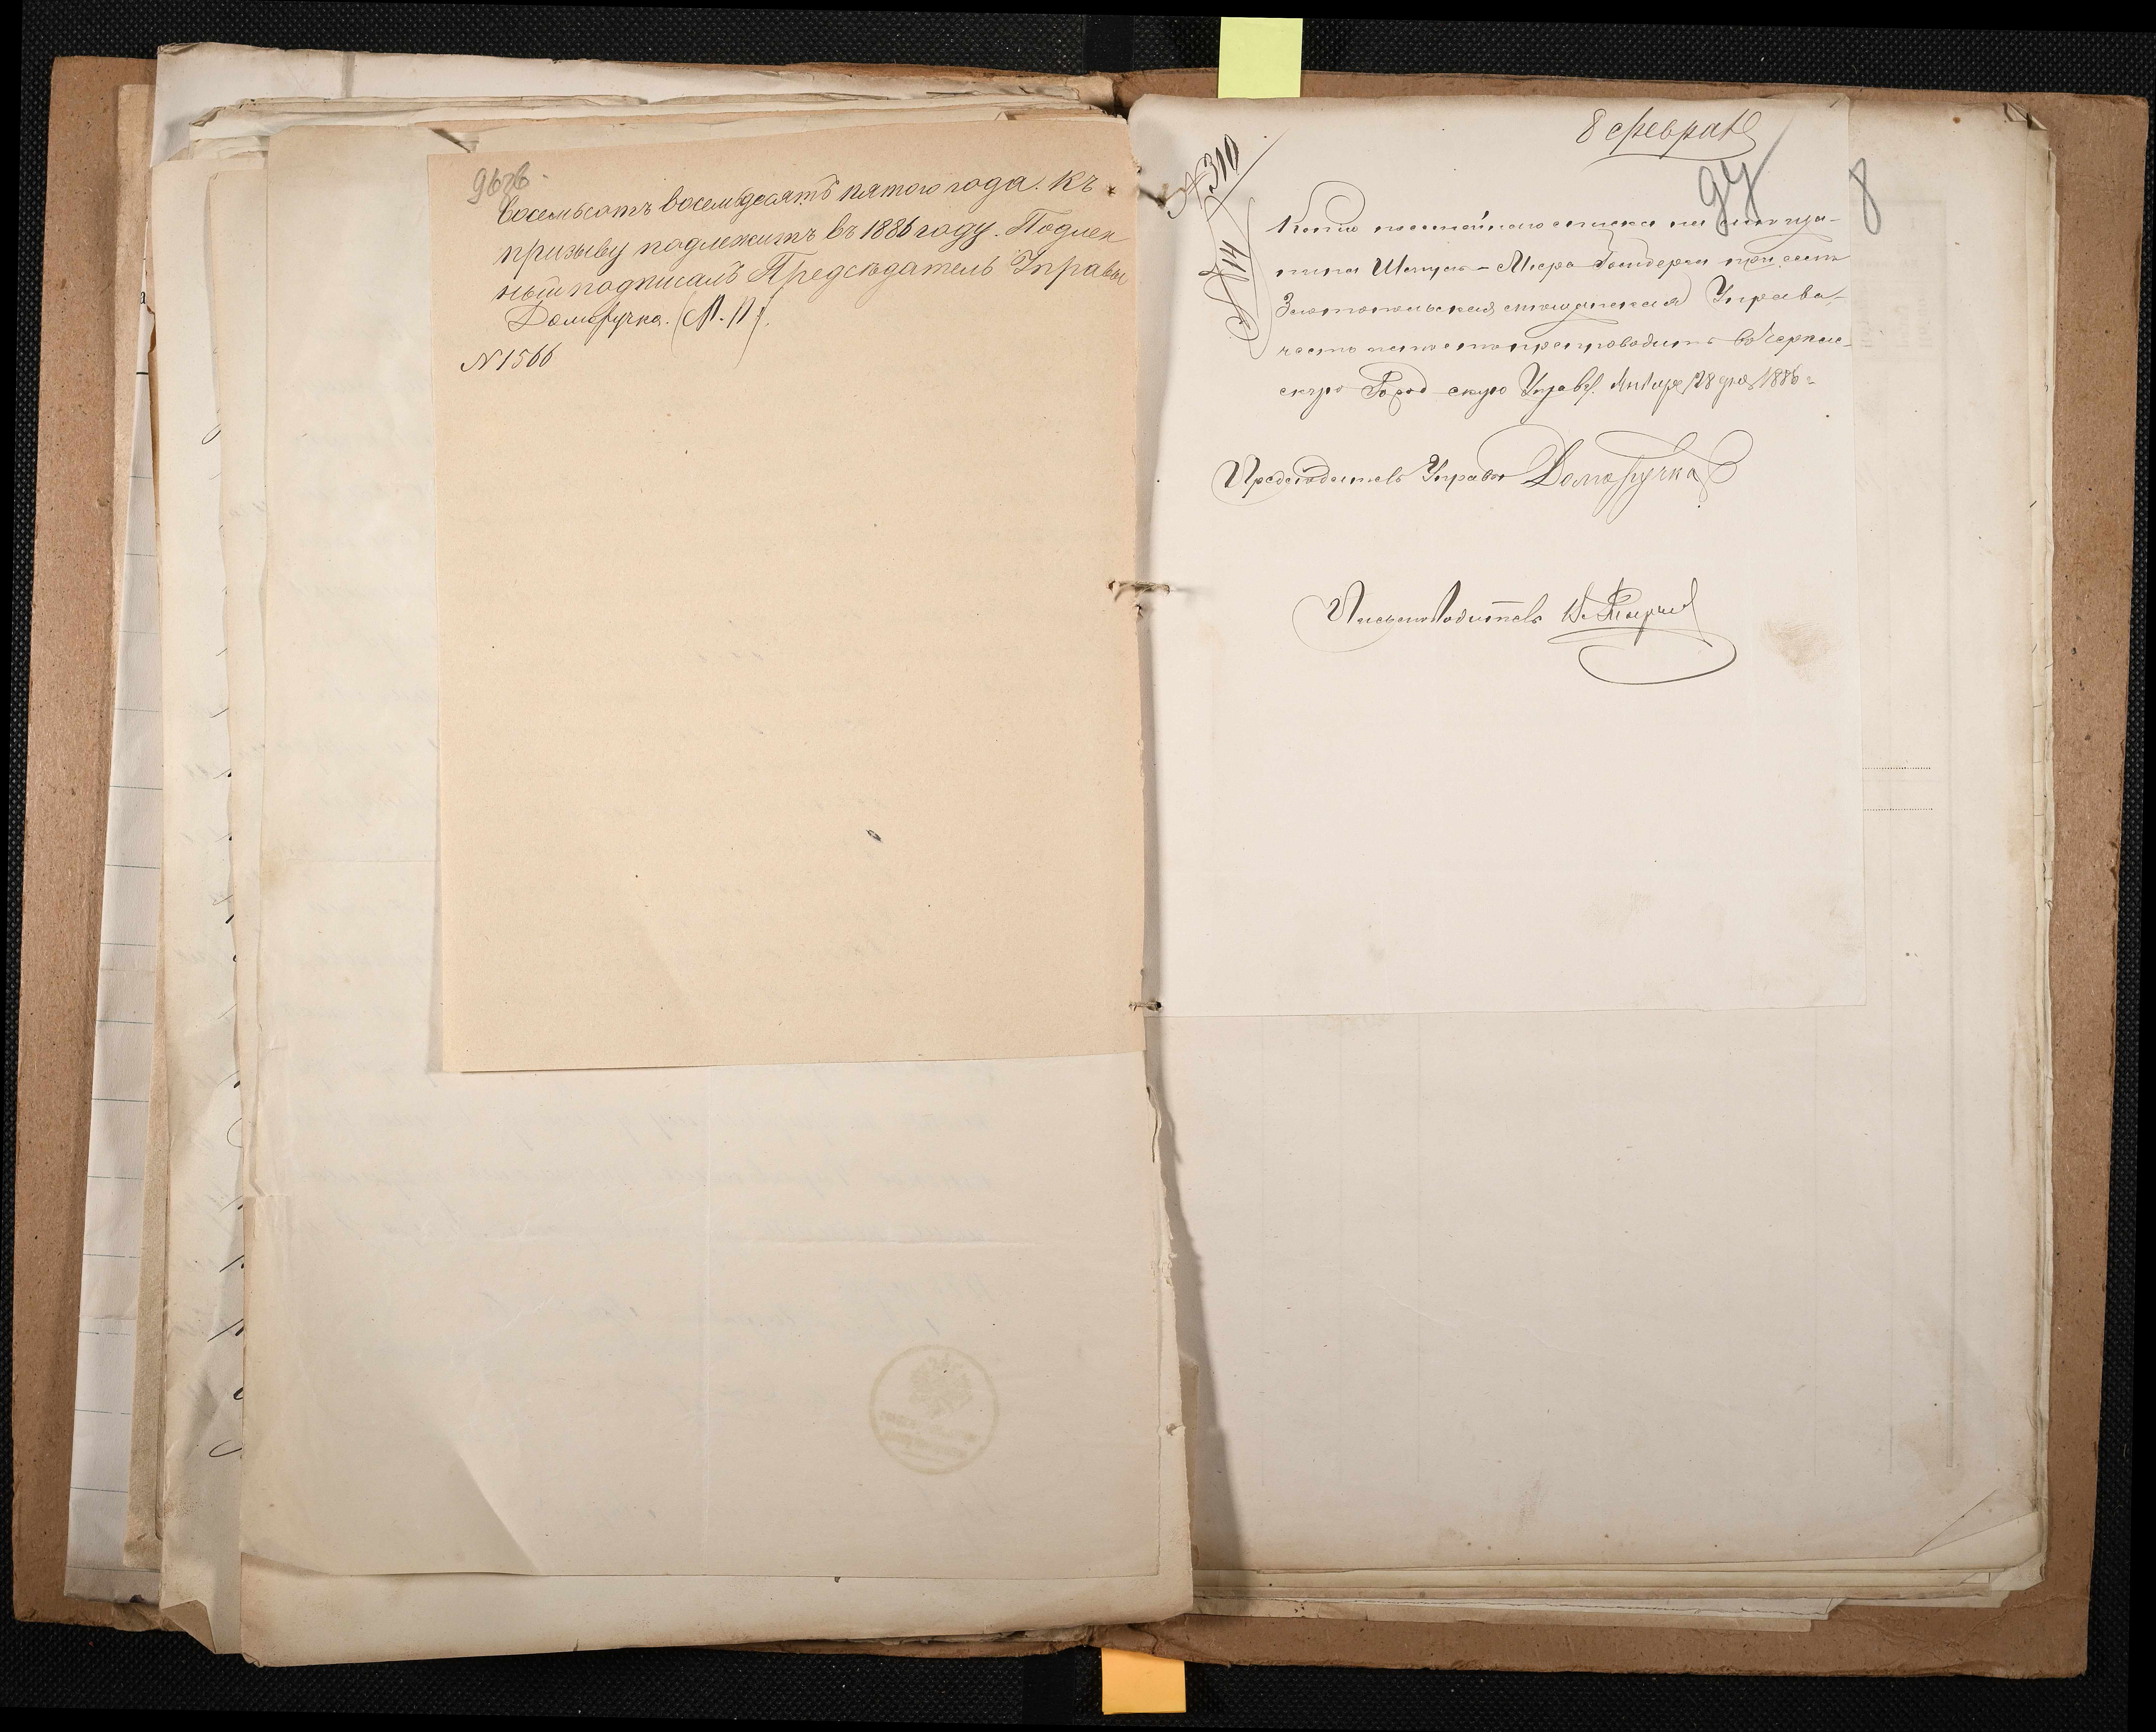 96об.
восемьсотъ восемьдесятъ пятого года. Къ
призыву подлежитъ въ 1886 году. Подлен
ный подписалъ Предсѣдатель Управы
Домаручка. (М.П.)
№ 1566
8 февраля
97
8
№ 310
№ 114
Копію посемейнаго списка на мѣща-
нина Шмуль-Меера
Златопольская мѣщанская Управа
честь имѣетъ препроводить въ Черкас-
скую Городскую Управу. Января 28 дня 1886 г.
Предсѣдатель Управы Домаручка
Письмоводитель